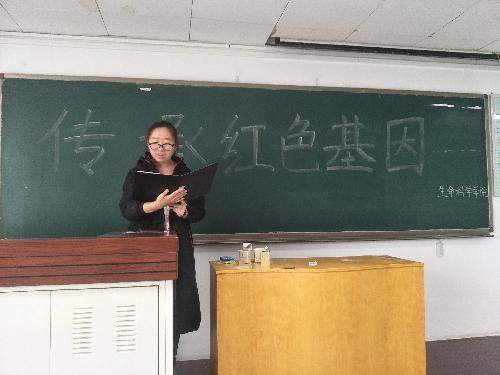 传承红色基因——
生命科学学院